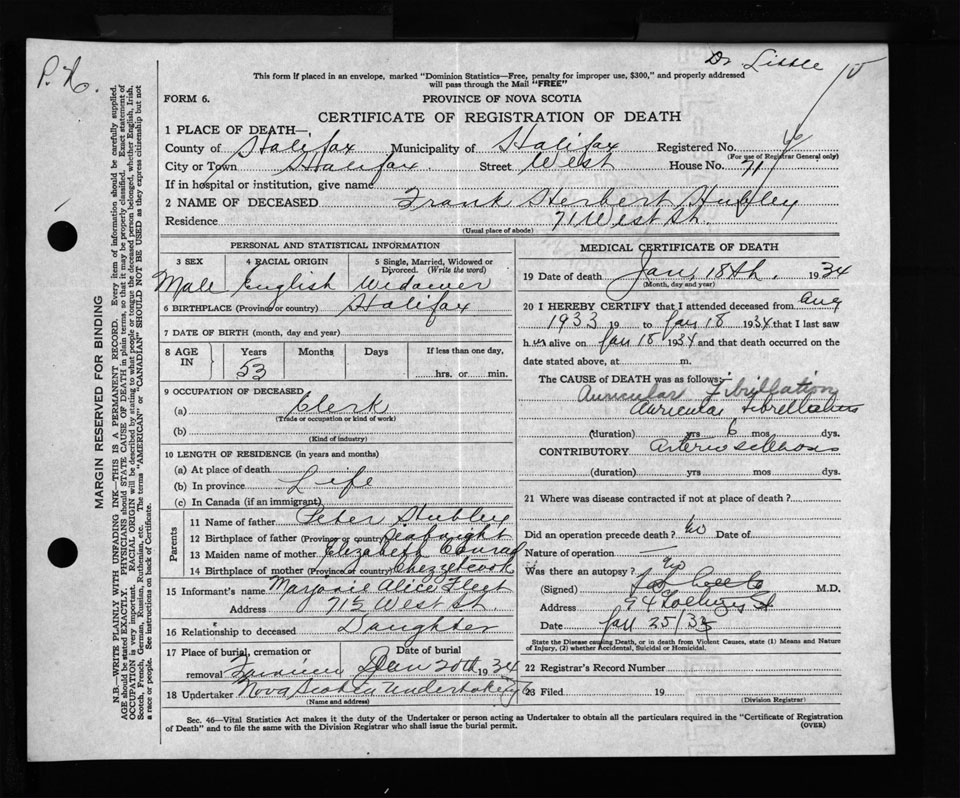 P. N.
Dr Little
This form if placed in an envelope, marked "Dominion Statistics—Free, penalty for improper use, $300," and properly addressed
will pass through the Mail "FREE"
FORM 6.
PROVINCE OF NOVA SCOTIA
CERTIFICATE OF REGISTRATION OF DEATH
1 PLACE OF DEATH—
County of Halifax Municipality of Halifax Registered No.
(For use of Registrar General only)
City or Town Halifax. Street West House No. 71
If in hospital or institution, give name
2 NAME OF DECEASED Frank Herbert Hubley
Residence 71 West St.
(Usual place of abode)
PERSONAL AND STATISTICAL INFORMATION
3 SEX 4 RACIAL ORIGIN 5 Single, Married, Widowed or
Divorced. (Write the word)
Male English Widower
6 BIRTHPLACE (Province or country) Halifax
7 DATE OF BIRTH (month, day and year)
8 AGE IN Years Months Days If less than one day,
53 hrs. or min.
9 OCCUPATION OF DECEASED
(a) Clerk
(Trade or occupation or kind of work)
(b)
(Kind of industry)
10 LENGTH OF RESIDENCE (in years and months)
(a) At place of death
(b) In province Life
(c) In Canada (if an immigrant)
Parents
11 Name of father Peter Hubley
12 Birthplace of father (Province or country) Seabright
13 Maiden name of mother Elizabeth Conrad
14 Birthplace of mother (Province or country) Chezzetcook
15 Informant's name Marjorie Alice Fleet
Address 71½ West St.
16 Relationship to deceased Daughter
17 Place of burial, cremation or Date of burial
removal Fairview Jan 20th 1934
18 Undertaker Nova Scotia Undertaking Co
(Name and address)
MEDICAL CERTIFICATE OF DEATH
19 Date of death Jan, 18th. 1934
(Month, day and year)
20 I HEREBY CERTIFY that I attended deceased from Aug
1933 19 to Jan 18 1934 that I last saw
h im alive on Jan 18 1934 and that death occurred on the
date stated above, at m.
The CAUSE of DEATH was as follows:
Auricular Fibrillation
Auricular Fibrillation
(duration) yrs 6 mos dys.
CONTRIBUTORY Arterio sclerosis
(duration) yrs mos dys.
21 Where was disease contracted if not at place of death?
Did an operation precede death? No Date of
Nature of operation —
Was there an autopsy? No
(Signed) M.D.
Address 94 St
Date Jan 25/33
State the Disease causing Death, or in death from Violent Causes, state (1) Means and Nature
of Injury, (2) whether Accidental, Suicidal or Homicidal.
22 Registrar's Record Number
23 Filed 19
(Division Registrar)
Sec. 46—Vital Statistics Act makes it the duty of the Undertaker or person acting as Undertaker to obtain all the particulars required in the "Certificate of Registration
of Death" and to file the same with the Division Registrar who shall issue the burial permit. (OVER)
MARGIN RESERVED FOR BINDING
N.B.—WRITE PLAINLY WITH UNFADING INK—THIS IS A PERMANENT RECORD. Every item of information should be carefully supplied.
AGE should be stated EXACTLY. PHYSICIANS should STATE CAUSE OF DEATH in plain terms, so that it may be properly classified. Exact statement of
OCCUPATION is very important. RACIAL ORIGIN will be described by stating to what people or tongue the deceased person belonged, whether English, Irish,
Scotch, French, German, Russian, Ruthenian, etc. The terms "AMERICAN" or "CANADIAN" SHOULD NOT BE USED as they express citizenship but not
a race or people. See instructions on back of Certificate.